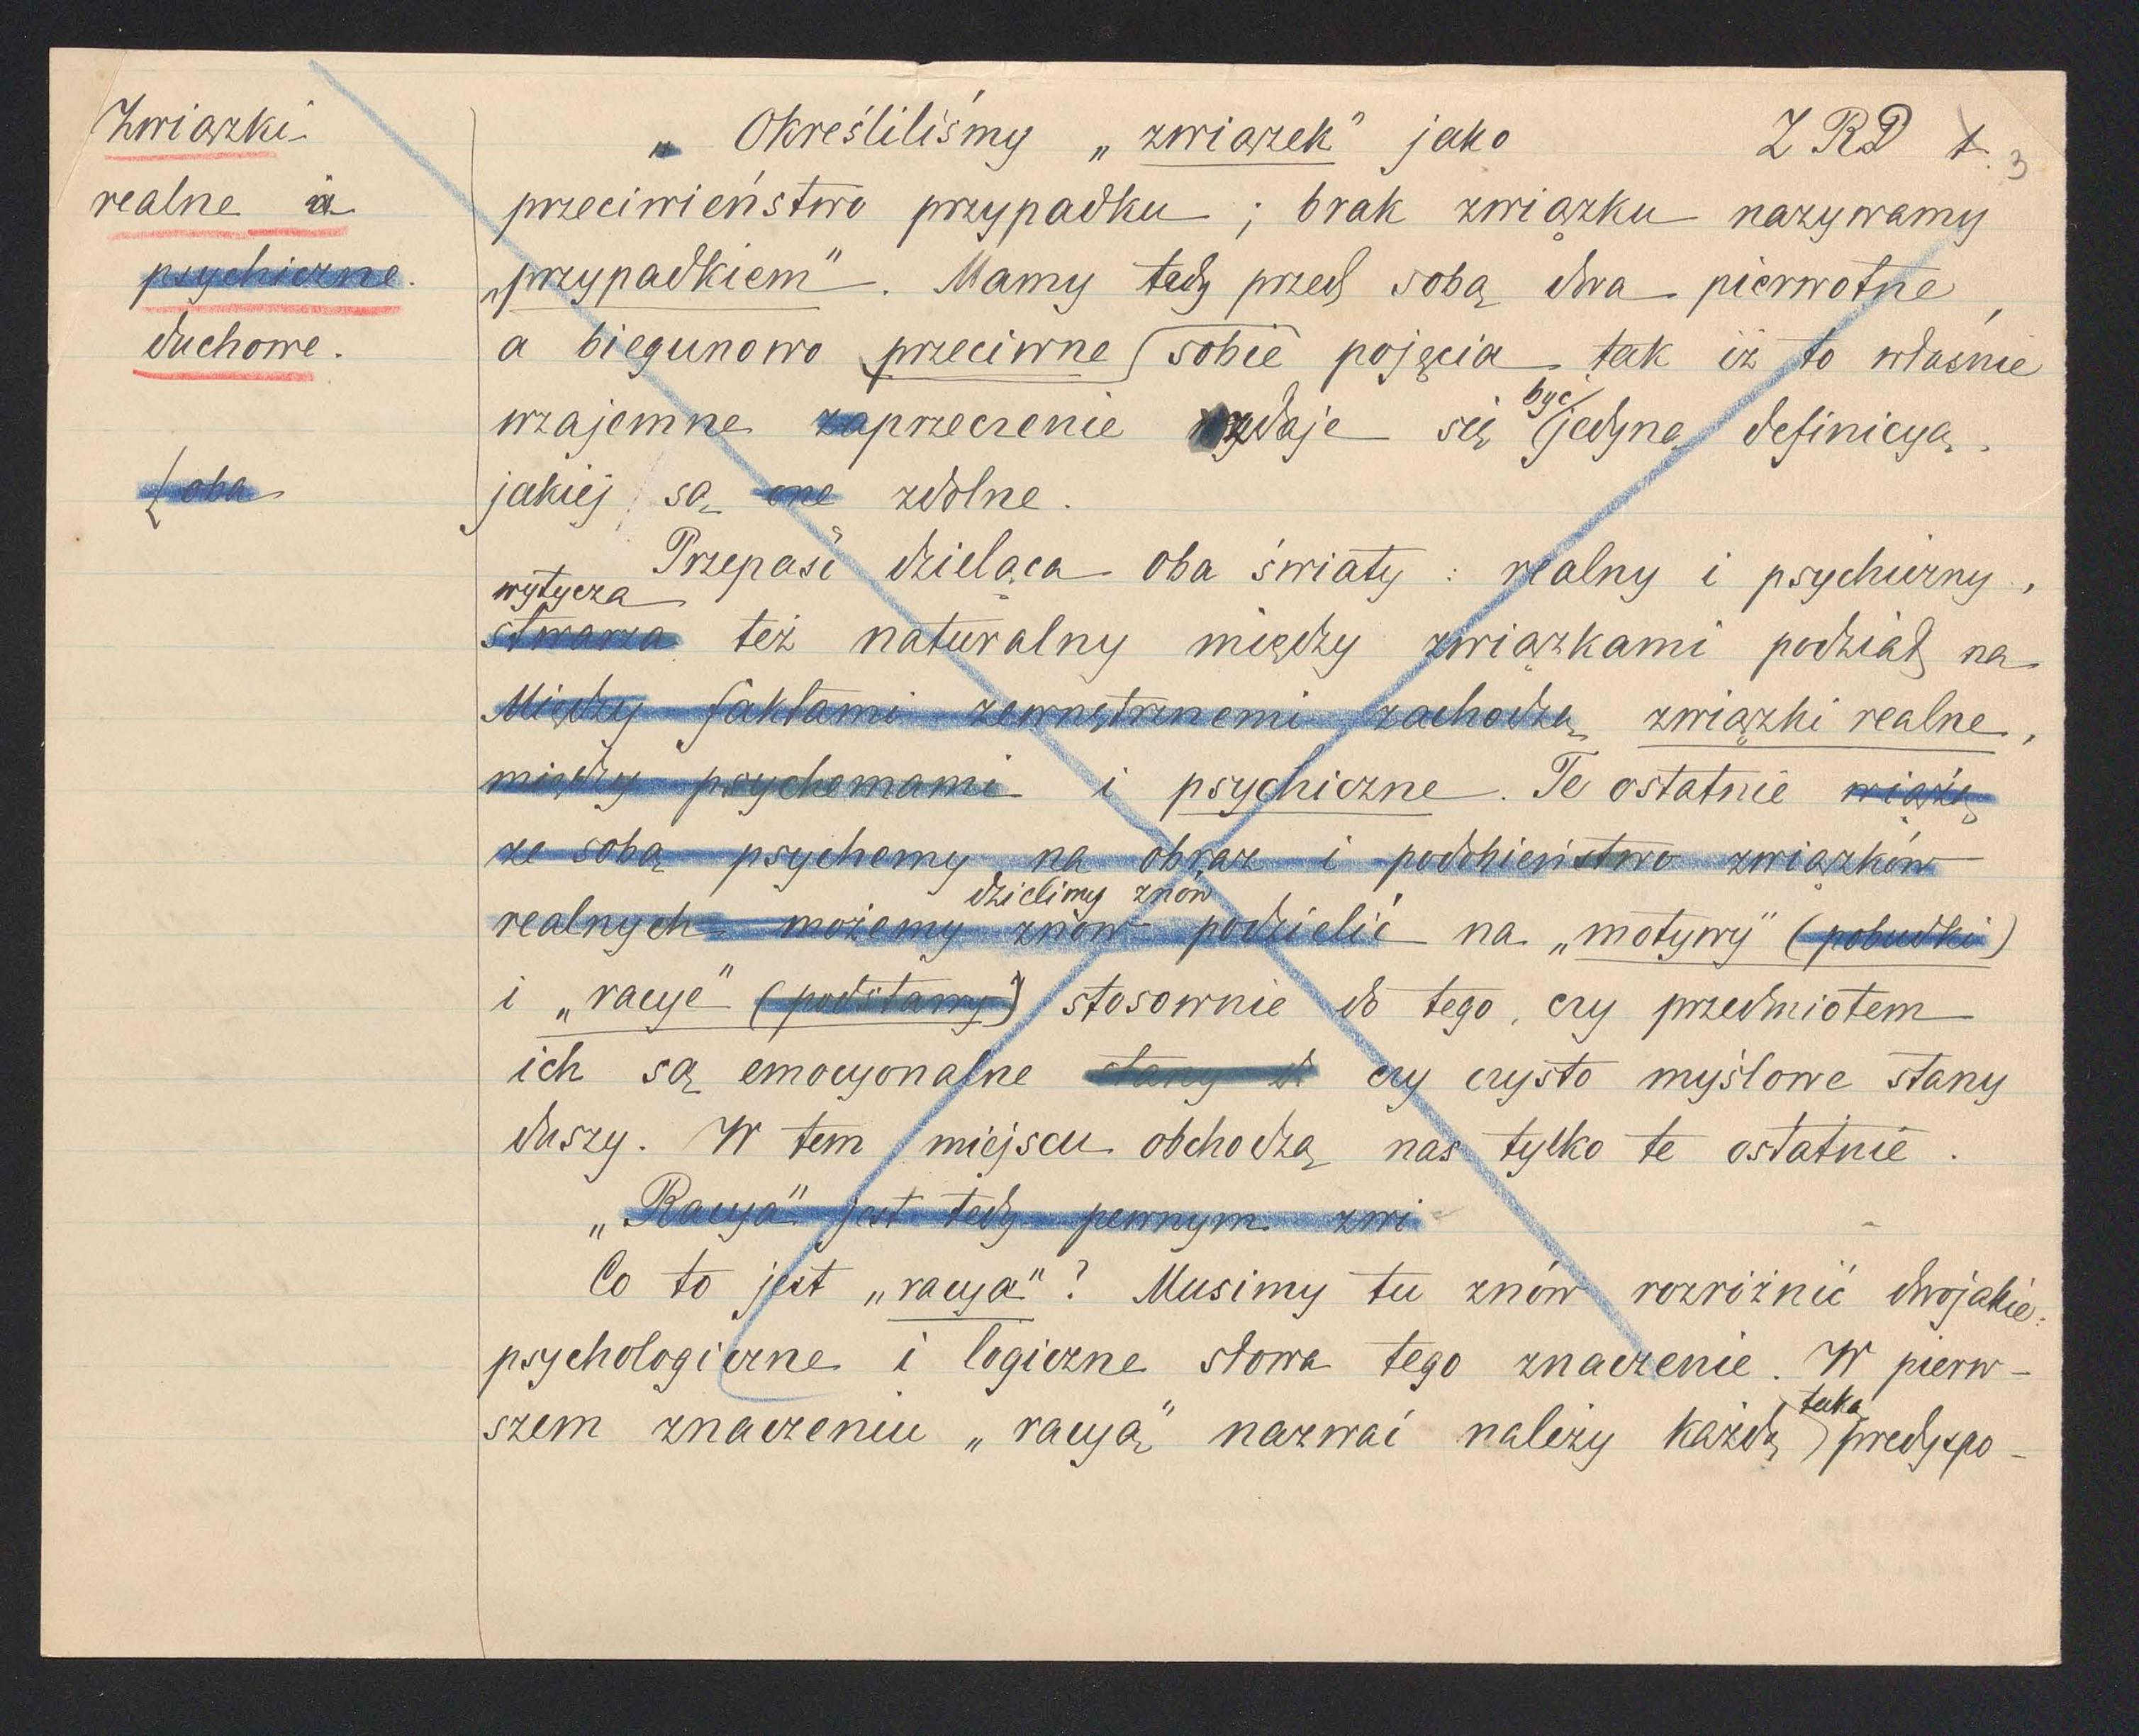 Związki
realne i
psychiczne.
duchowe.
{ oba
„ Określiliśmy „związek” jako Z R D 1. 3
przeciwieństwo przypadku ; brak związku nazywamy
„przypadkiem”. Mamy tedy przed sobą dwa pierwotne,
a biegunowo przeciwne sobie pojęcia tak iż to właśnie
być
wzajemne zaprzeczenie zdaje się jedyną definicyą,
jakiej są one zdolne.
Przepaść dzieląca oba światy : realny i psychiczny,
wytycza
stwarza też naturalny między związkami podział na
Między faktami zewnętrznemi zachodzą związki realne,
między psychemami i psychiczne. Te ostatnie wiążą
ze sobą psychemy na obraz i podobieństwo związków
dzielimy znów
realnych możemy znów podzielić na „motywy” (pobudki)
i „racye” (podstawy) stosownie do tego, czy przedmiotem
ich są emocyonalne stany d czy czysto myślowe stany
duszy. W tem miejscu obchodzą nas tylko te ostatnie.
„Racya” jest tedy pewnym zwi
Co to jest „racya”? Musimy tu znów rozróżnić dwojakie:
psychologiczne i logiczne słowa tego znaczenie. W pierw-
taką
szem znaczeniu „racyą” nazwać należy każdą predyspo-